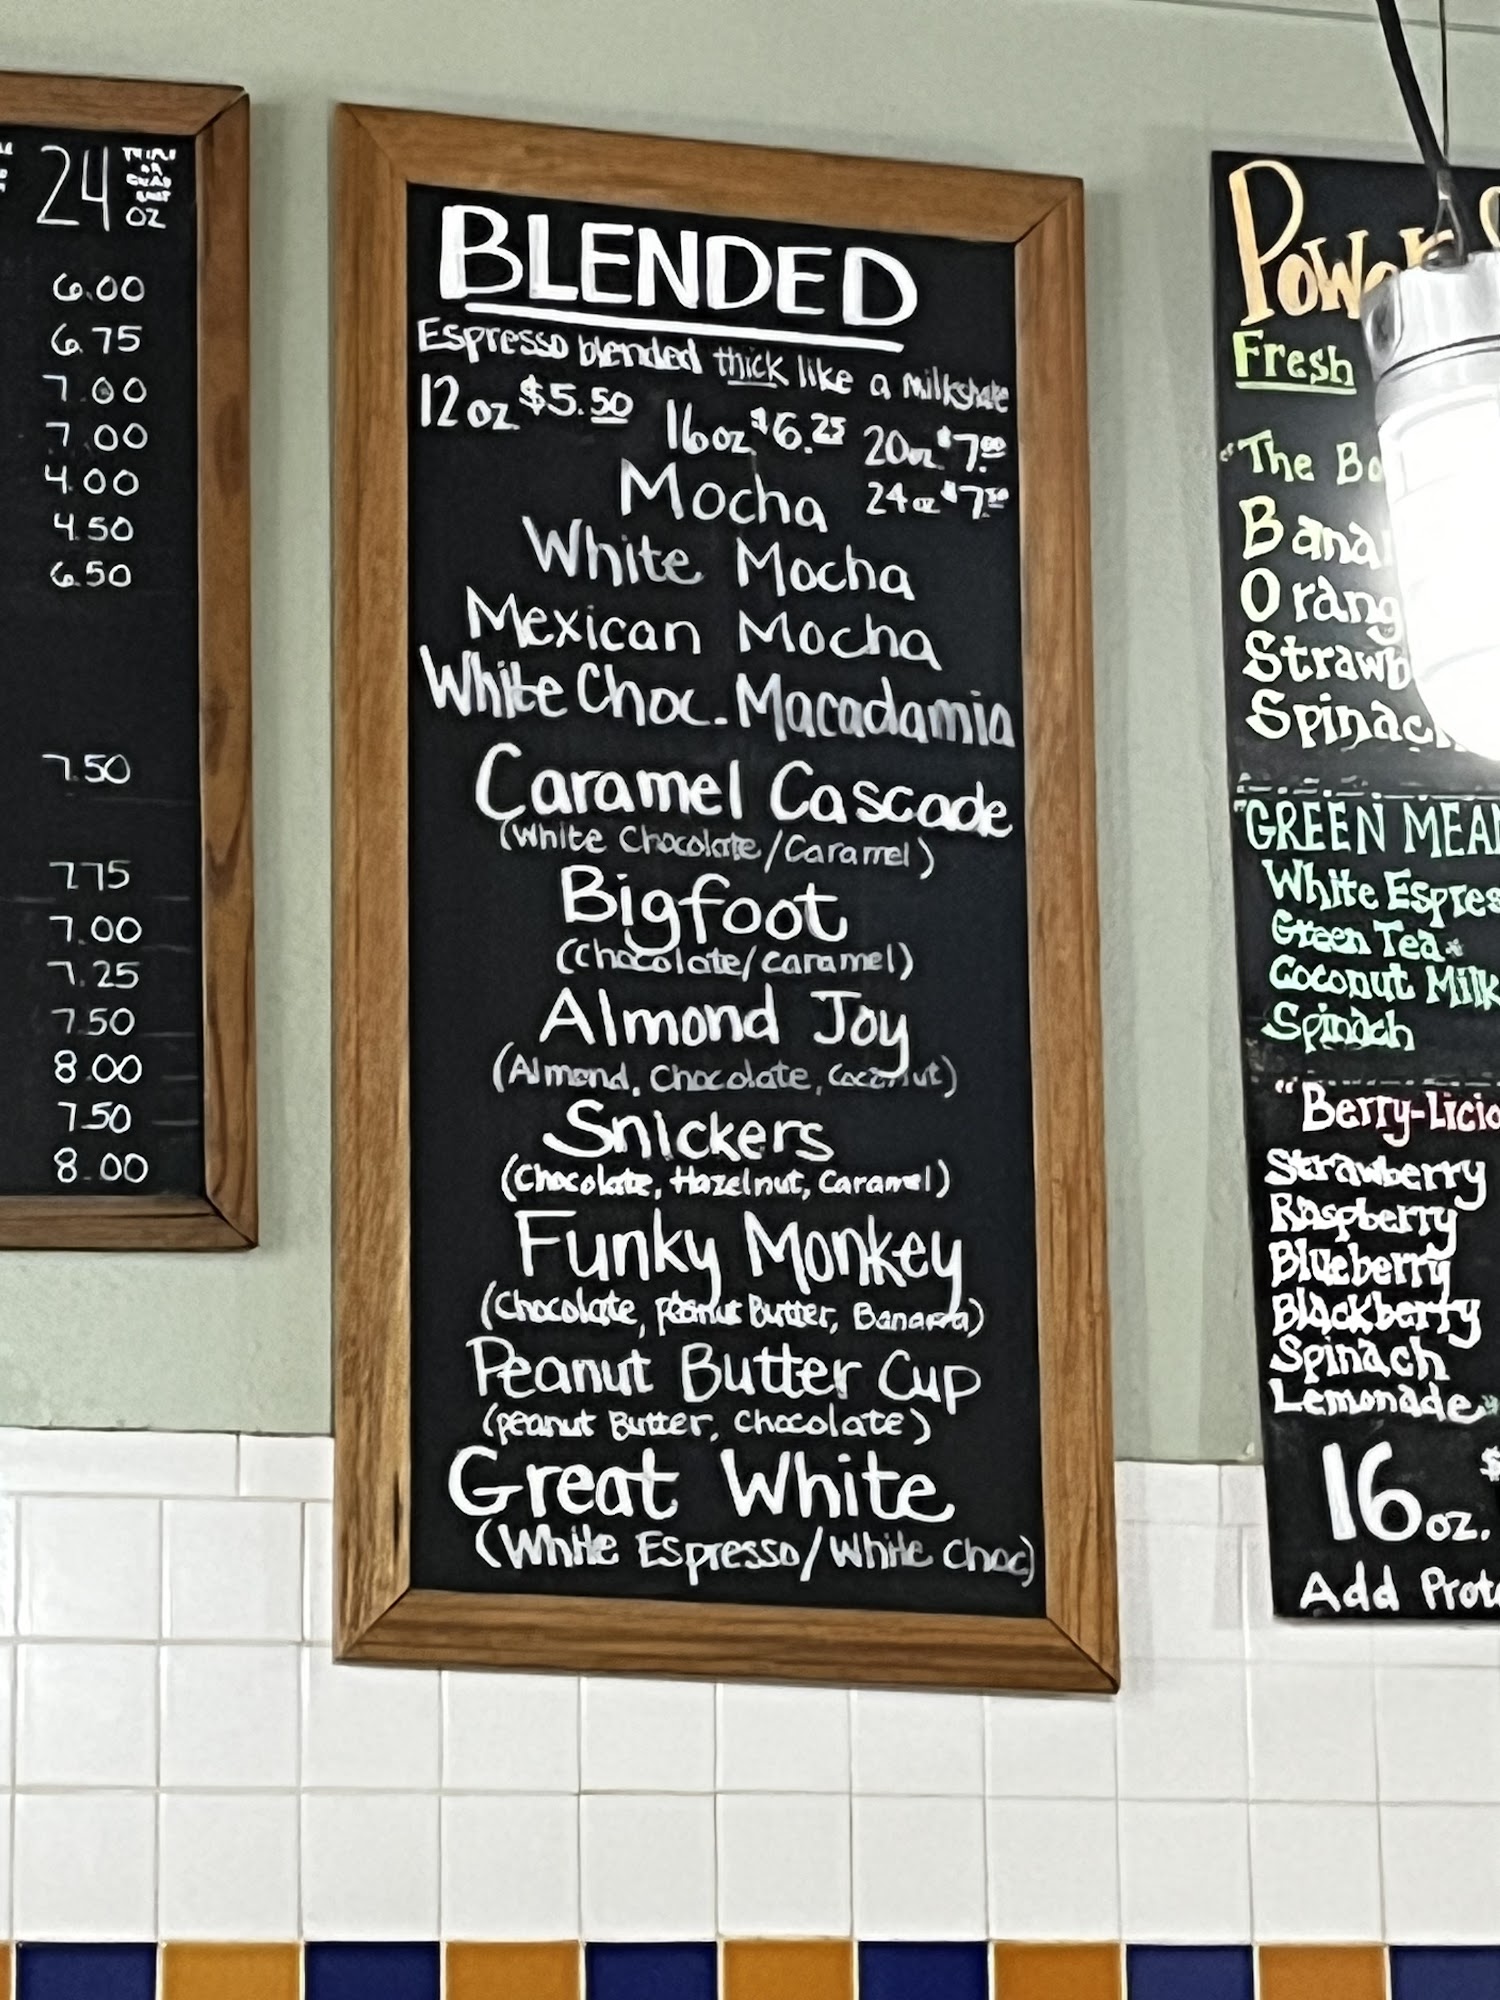 24
OZ
6.00
6.75
7.00
7.00
4.00
4.50
6.50
7.50
7.75
7.00
7.25
7.50
8.00
7.50
8.00
BLENDED
Espresso blended thick like a milkshake
12oz $5.50 16oz $6.25 20oz $7.00
24oz $7.50
Mocha
White Mocha
Mexican Mocha
White Choc. Macadamia
Caramel Cascade
(White Chocolate/Caramel)
Bigfoot
(Chocolate/Caramel)
Almond Joy
(Almond, Chocolate, Coconut)
Snickers
(Chocolate, Hazelnut, Caramel)
Funky Monkey
(Chocolate, Peanut Butter, Banana)
Peanut Butter Cup
(Peanut Butter, Chocolate)
Great White
(White Espresso/White Choc)
Power
Fresh
"The Bo
Banan
Orang
Strawb
Spinach
"GREEN MEAN
White Espres
Green Tea
Coconut Milk
Spinach
"Berry-Licio
Strawberry
Raspberry
Blueberry
Blackberry
Spinach
Lemonade
16oz. $
Add Prote